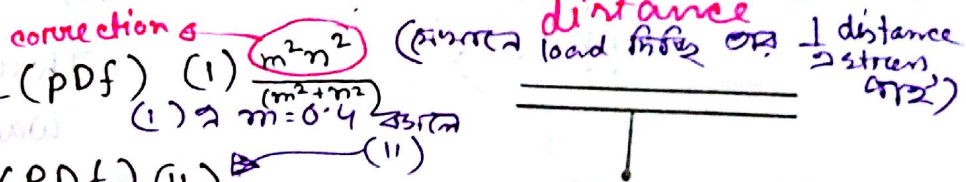 correction distance
(PDf) (1) m²n² / (m²+n²) (যেখানে load দিচ্ছি তার ⊥ distance
(1) এ m=0.4 বসালে (11)
(PDf) (11)